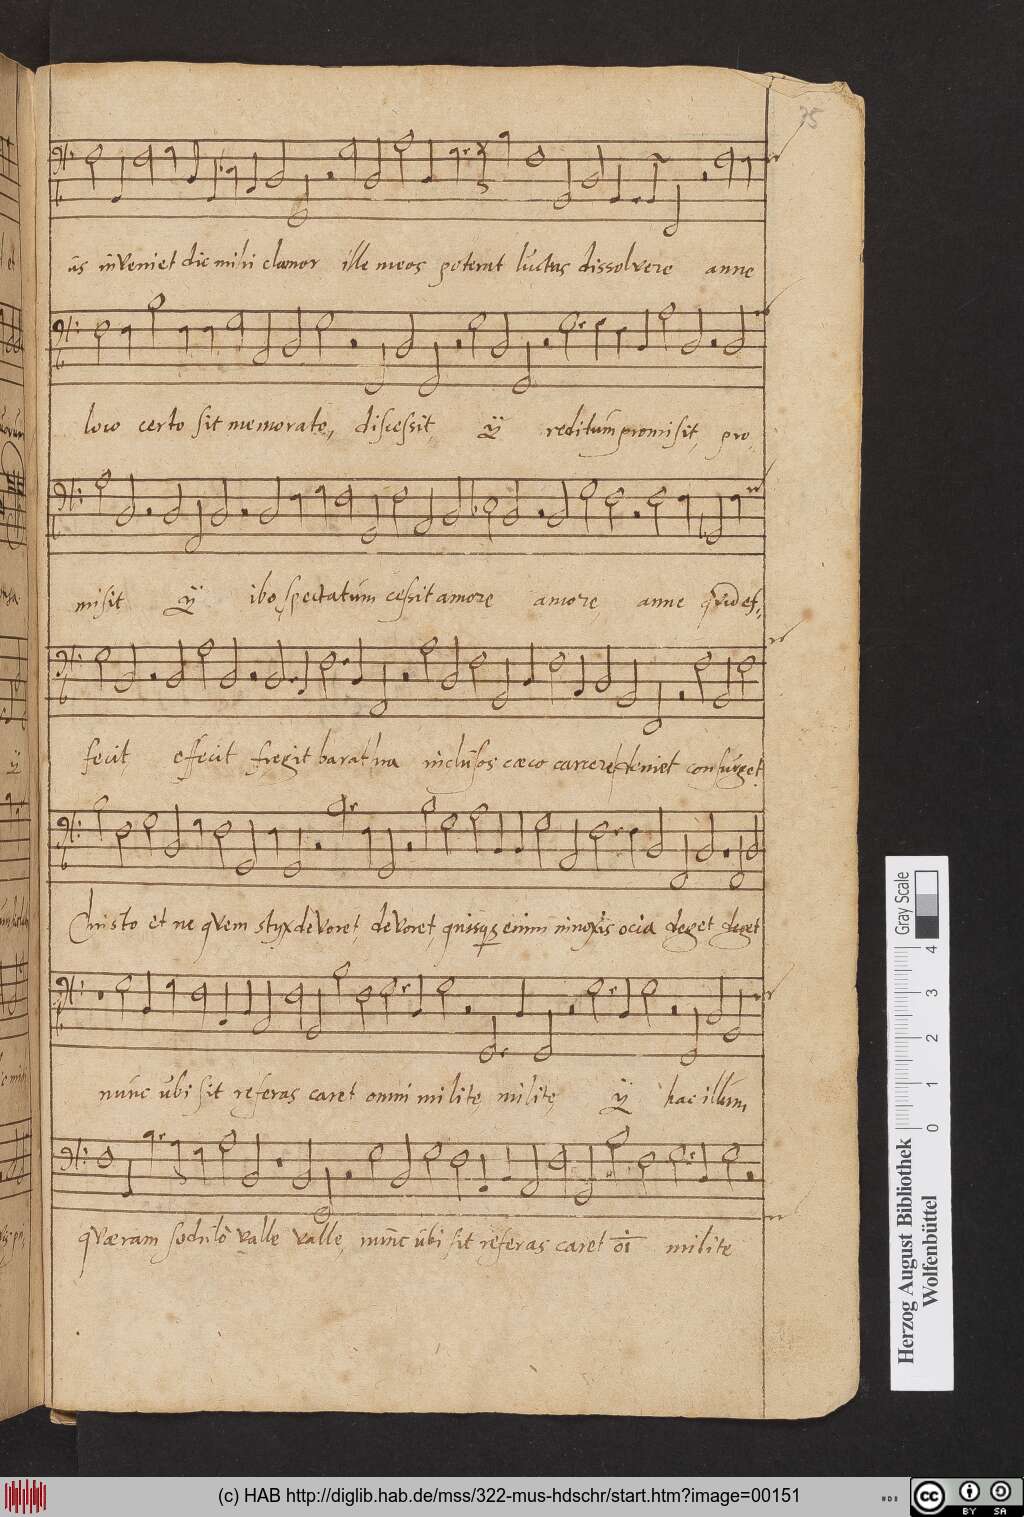 75
us inveniet dic mihi clamor ille meos poterat luctus dissolvere anne
loco certo sit memorato, discessit, ÿ reditum promisit, pro,
misit ÿ ibo, spectatum cessit amore amore, anne quid ef,
fecit, effecit fregit barathra inclusos cæco carcere veniet consurget
Christo et ne quem styx devoret, devoret, quisqs enim ocia deget deget
nunc ubi sit referas caret omni milite milite, ÿ hac illum,
quæram sedulò valle valle, nunc ubi sit referas caret oi milite
Gray Scale
0 1 2 3 4
Herzog August Bibliothek
Wolfenbüttel
(c) HAB http://diglib.hab.de/mss/322-mus-hdschr/start.htm?image=00151
cc BY SA